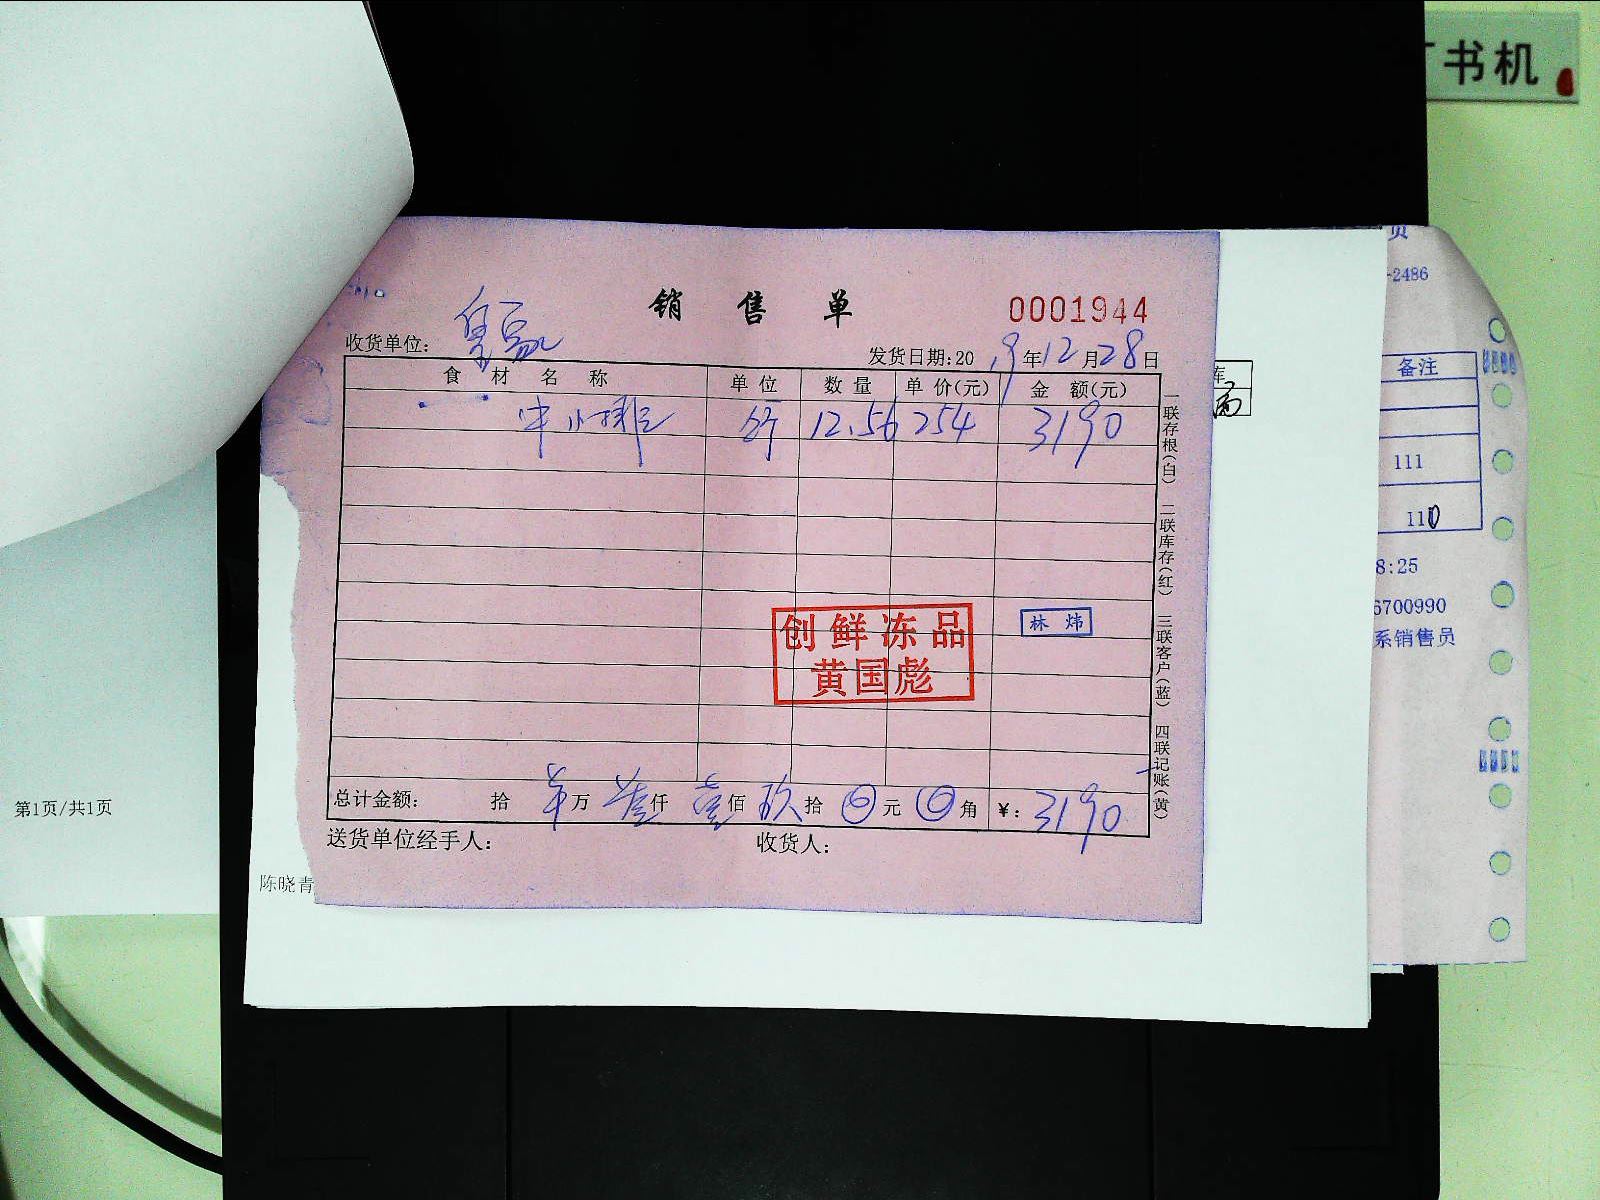 书机
页
-2486
销售单 0001944
收货单位: 发货日期:2019年12月28日
库
备注
食材名称 单位 数量 单价(元) 金额(元)
牛小排 斤 12.56 254 3190
111
110
8:25
6700990
系销售员
一联存根(白) 二联库存(红) 三联客户(蓝) 四联记账(黄)
创鲜冻品
黄国彪
林炜
总计金额: 拾 万 仟 壹佰 玖拾 元 角 ¥: 3190
送货单位经手人: 收货人:
第1页/共1页
陈晓青